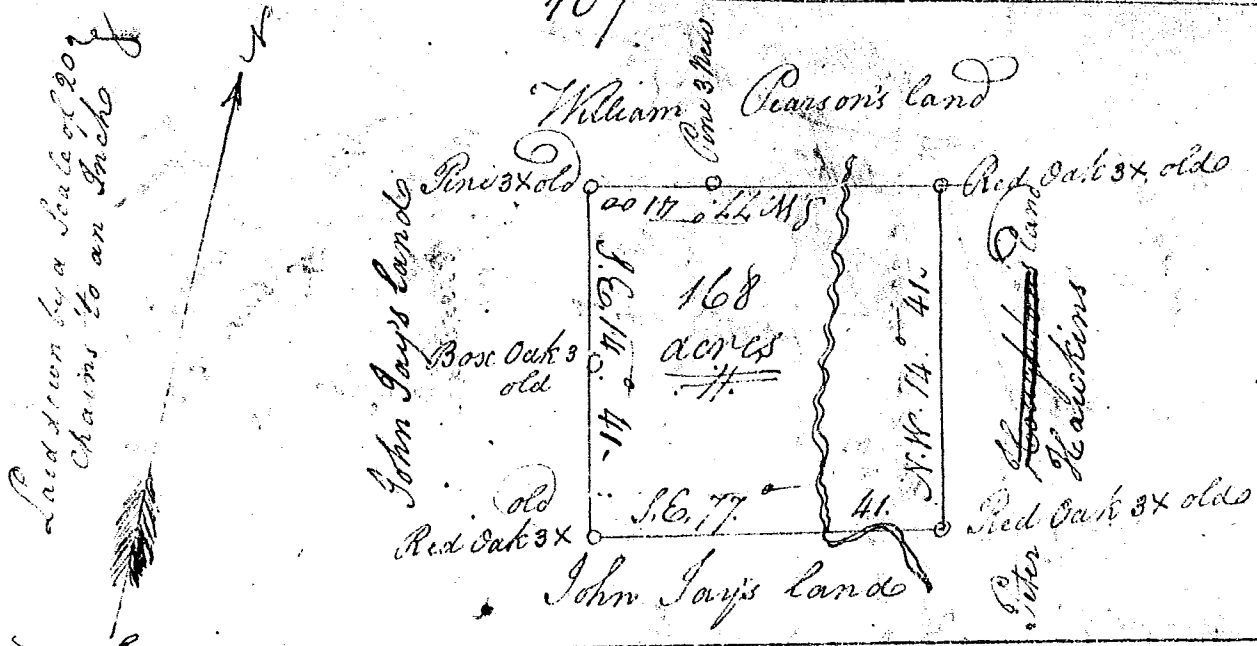 107
Laid down by a Scale of 20
Chains to an Inch
N
William Pearson's land
Pine 3 New
Pine 3X old
Red Oak 3X old
S.W. 77. 41.00
John Jay's land
S.E. 14° 41-
168
acres
Box Oak 3
old
N.W. 14° 41.
Peter Hawkins land
old
Red Oak 3X
S.E. 77.° 41.
Red Oak 3X old
John Jay's land